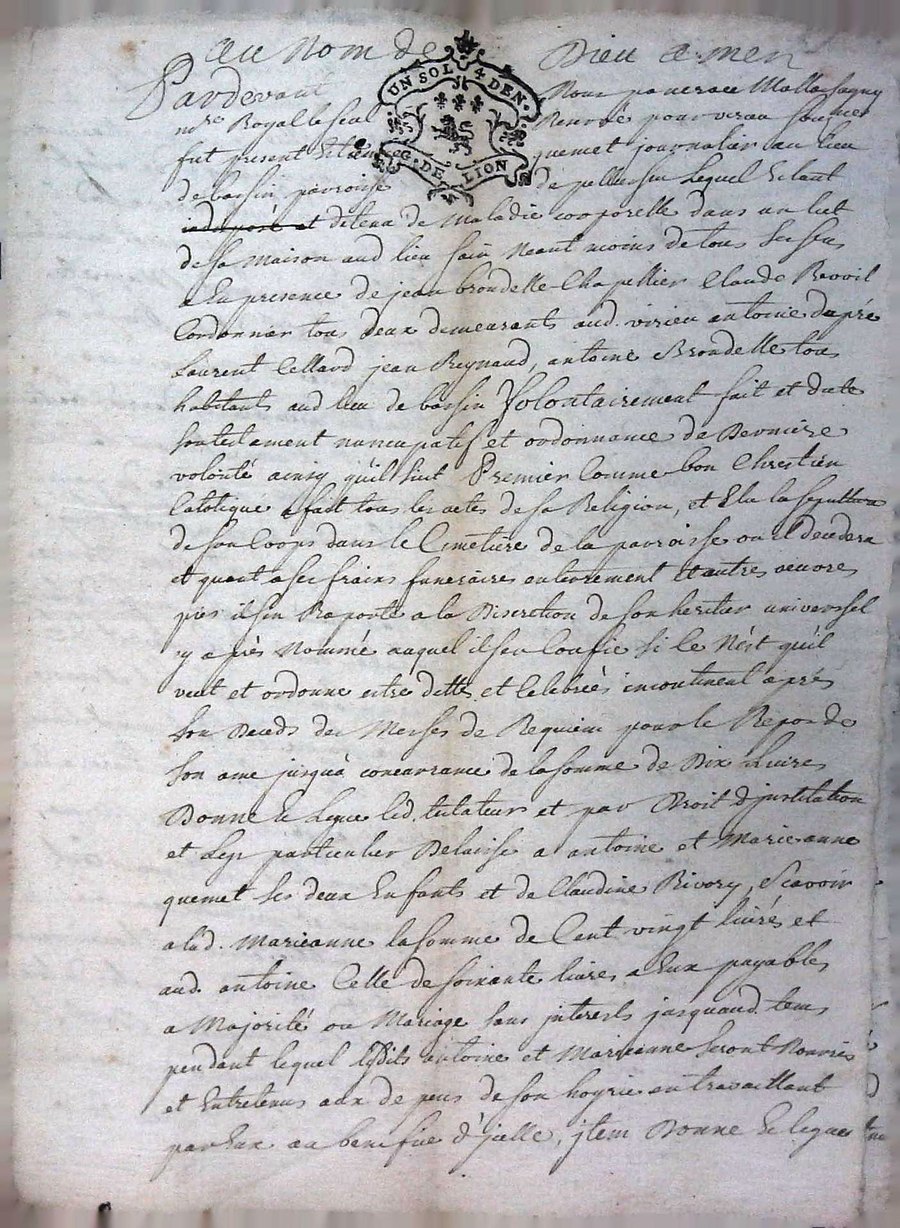 au Nom de Dieu amen
UN SOL 4 DEN.
G. DE LION
Pardevant Nous
no.re Royal le seul pour veran
fut present quemet journalier au lieu
de bassin parroisse de pellussin lequel Estant
detenu de Maladie corporelle dans un lict
de sa Maison aud lieu sain Neant moins de tous ses sens
a En presence de jean brondelle Chapellier Claude Revoil
Cordonnier tous deux demeurants aud. virieu antoine dupré
Laurent Cellard jean Reynaud, antoine Brondelle tous
habitants aud lieu de bassin Volontairement fait et dicte
son testament nuncupatif et ordonnance de Derniere
volonté ainsy quil suit Premier Comme bon Chrestien
Catolique a fait tous les actes de sa Religion, et Elu la sepulture
de son Corps dans le Cimetiere de la parroisse ou il decedera
et quant a ses frais funeraires enterrement et autres oeuvres
pies il s'en Raporte a la Discretion de son heritier universsel
cy après Nommé auquel il s'en Confie si le N'est qu'il
veut et ordonne estre dette et Celebrées incontinent après
son Deceds des Messes de Requiem pour le Repos de
son ame jusqu'a concurrance de la somme de Dix Livres
Donne et legue led. testateur et par Droit d'institution
et Legs particulier Delaisse a antoine et Marieanne
quemet ses deux Enfants et de Claudine Rivory, Scavoir
a lad. Marieanne la somme de Cent vingt livres et
aud. antoine Celle de soixante livres a Eux payables
a Majorité ou Mariage sans interests jusquaud. tems
pendant lequel lesdits antoine et Marieanne seront Nourris
et Entretenus aux depens de son hoyrie en travaillant
par Eux au benefice d'jcelle, jtem Donne et legue